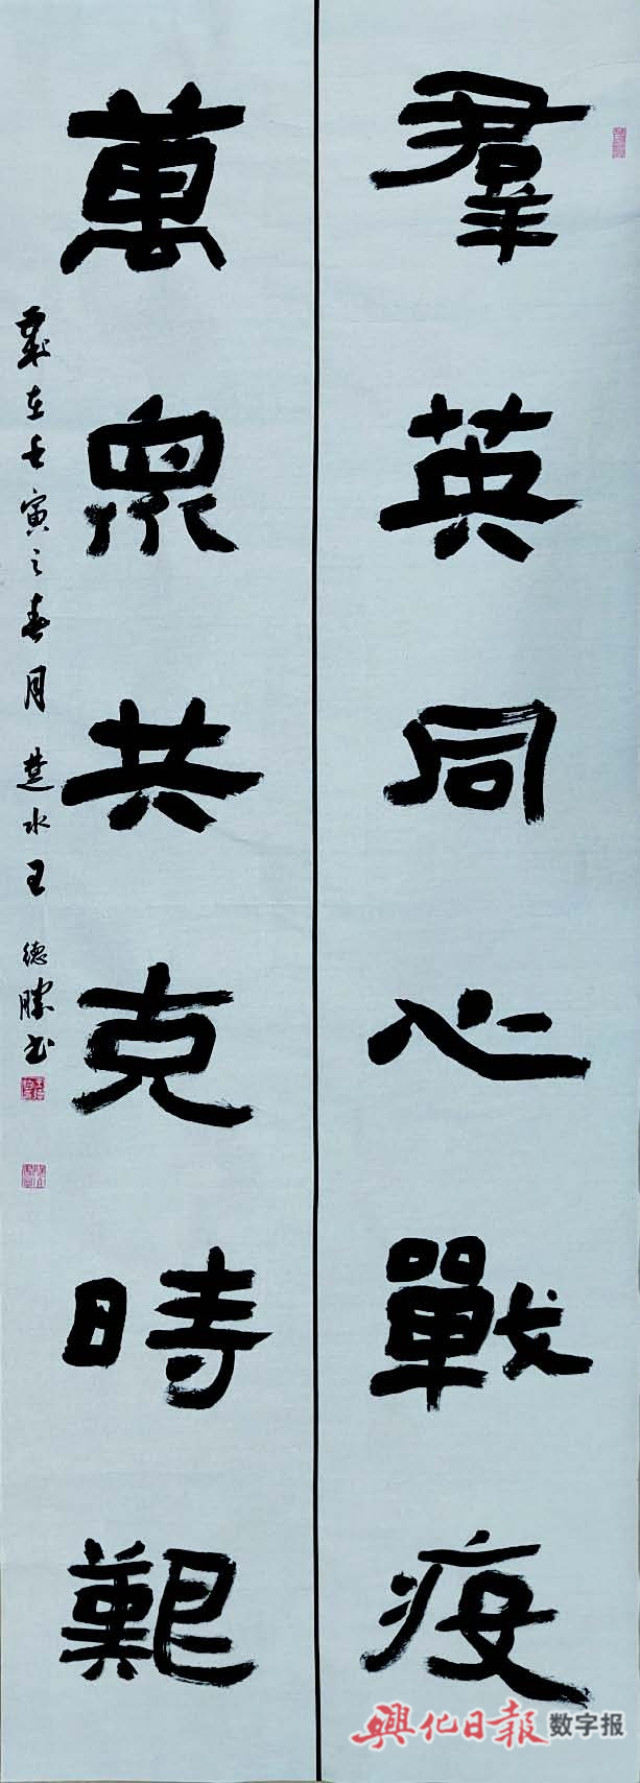 羣英同心戰疫
萬眾共克時艱
歲在壬寅之春月 楚水王德勝書
興化日報 数字报